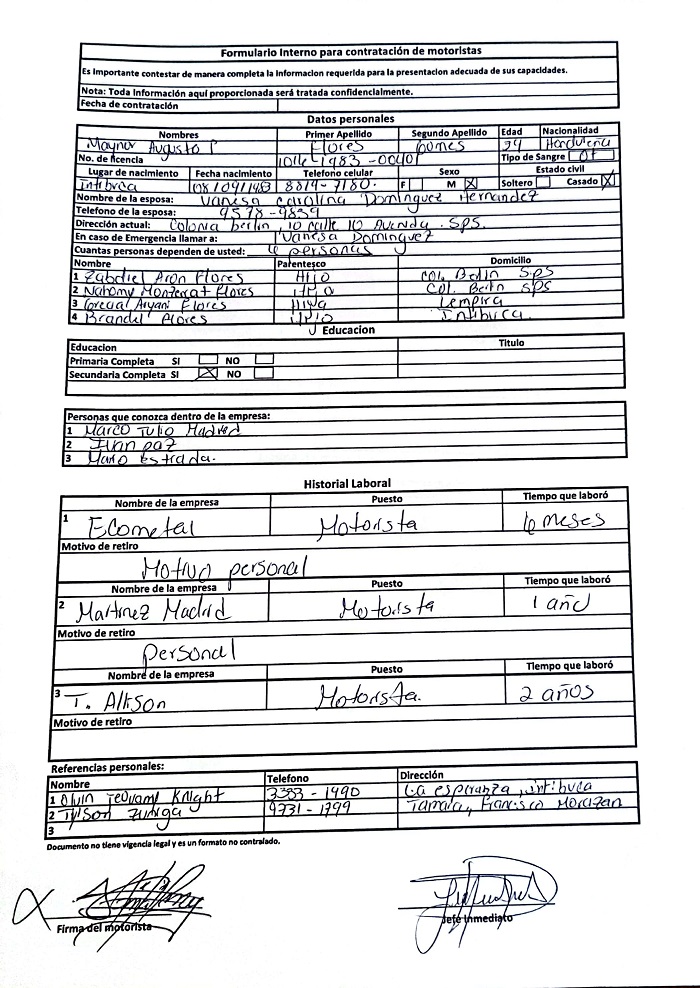 Formulario Interno para contratación de motoristas
Es importante contestar de manera completa la informacion requerida para la presentacion adecuada de sus capacidades.
Nota: Toda información aquí proporcionada será tratada confidencialmente.
Fecha de contratación
Datos personales
Nombres Primer Apellido Segundo Apellido Edad Nacionalidad
Maynor Augusto Flores Gomes Hondureña
No. de licencia 1983 Tipo de Sangre O+
Lugar de nacimiento Fecha nacimiento Telefono celular Sexo Estado civil
Intibuca 8819-7180 F M X Soltero Casado X
Nombre de la esposa: Vanesa Carolina Dominguez Hernandez
Telefono de la esposa: 9578-9839
Dirección actual: Colonia berlin 10 calle 10 Avenida. SPS.
En caso de Emergencia llamar a: Vanesa Dominguez
Cuantas personas dependen de usted: personas
Nombre Parentesco Domicilio
1 Flores Hijo Col. Berlin SPS
2 Flores Col. Berlin SPS
3 Flores Lempira
4 Flores Intibuca
Educacion
Educacion Titulo
Primaria Completa SI NO
Secundaria Completa SI X NO
Personas que conozca dentro de la empresa:
1 Marco Tulio Madrid
2 Juan paz
3 Mario estrada.
Historial Laboral
Nombre de la empresa Puesto Tiempo que laboró
1 Ecometal Motorista meses
Motivo de retiro
Motivo personal
Nombre de la empresa Puesto Tiempo que laboró
2 Martinez Madrid Motorista 1 año
Motivo de retiro
personal
Nombre de la empresa Puesto Tiempo que laboró
3 T. Allison Motorista. 2 años
Motivo de retiro
Referencias personales:
Nombre Telefono Dirección
1 Knight 3383-1490 La esperanza, intibuca
2 Zuniga 9731-1799 Francisco Morazan
3
Documento no tiene vigencia legal y es un formato no contralado.
Firma del motorista Jefe Inmediato